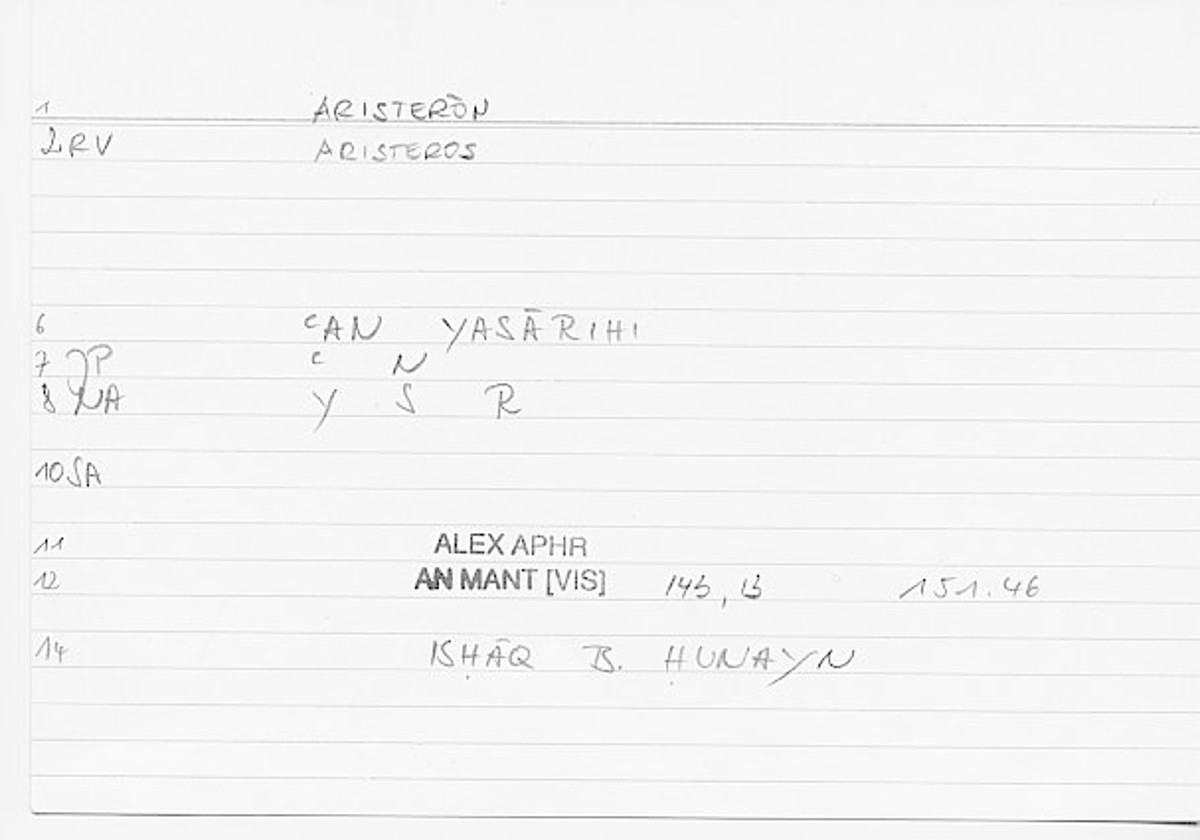 1 ARISTERÒN
2 RV ARISTEROS
6 ᶜAN YASĀRIHI
7 JP ᶜ N
8 NA Y S R
10 SA
11 ALEX APHR
12 AN MANT [VIS] 151.46
14 ISḤĀQ B. ḤUNAYN